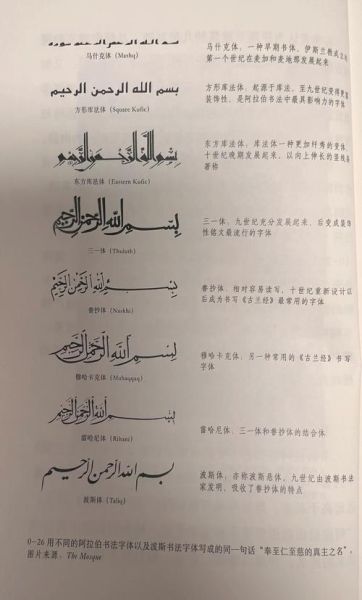 马什克体，一种早期书体，伊斯兰教成立
第一个世纪在麦加和麦地那发展起来
马什克体（Mashq）
بسم الله الرحمن الرحيم
方形库法体（Square Kufic）
方形库法体，起源于库法，至九世纪变得更
装饰性，是阿拉伯书法中最具影响力的字体
东方库法体（Eastern Kufic）
东方库法体，库法体一种更加纤秀的变体，
十世纪晚期发展起来，以向上伸长的竖线条
著称
بسم الله الرحمن الرحيم
三一体（Thuluth）
三一体，九世纪充分发展起来，后变成装饰
性铭文最流行的字体
بسم الله الرحمن الرحيم
誊抄体（Naskhi）
誊抄体，相对容易读写，十世纪重新设计以
后成为书写《古兰经》最常用的字体
بسم الله الرحمن الرحيم
穆哈卡克体（Muhaqqaq）
穆哈卡克体，另一种常用的《古兰经》书写
字体
بسم الله الرحمن الرحيم
雷哈尼体（Rihani）
雷哈尼体，三一体和誊抄体的结合体
بسم الله الرحمن الرحيم
波斯体（Taliq）
波斯体，亦称波斯悬体，九世纪由波斯书法
家发明，吸收了誊抄体的特点
0-26 用不同的阿拉伯书法字体以及波斯书法字体写成的同一句话“奉至仁至慈的真主之名”，
图片来源：The Mosque